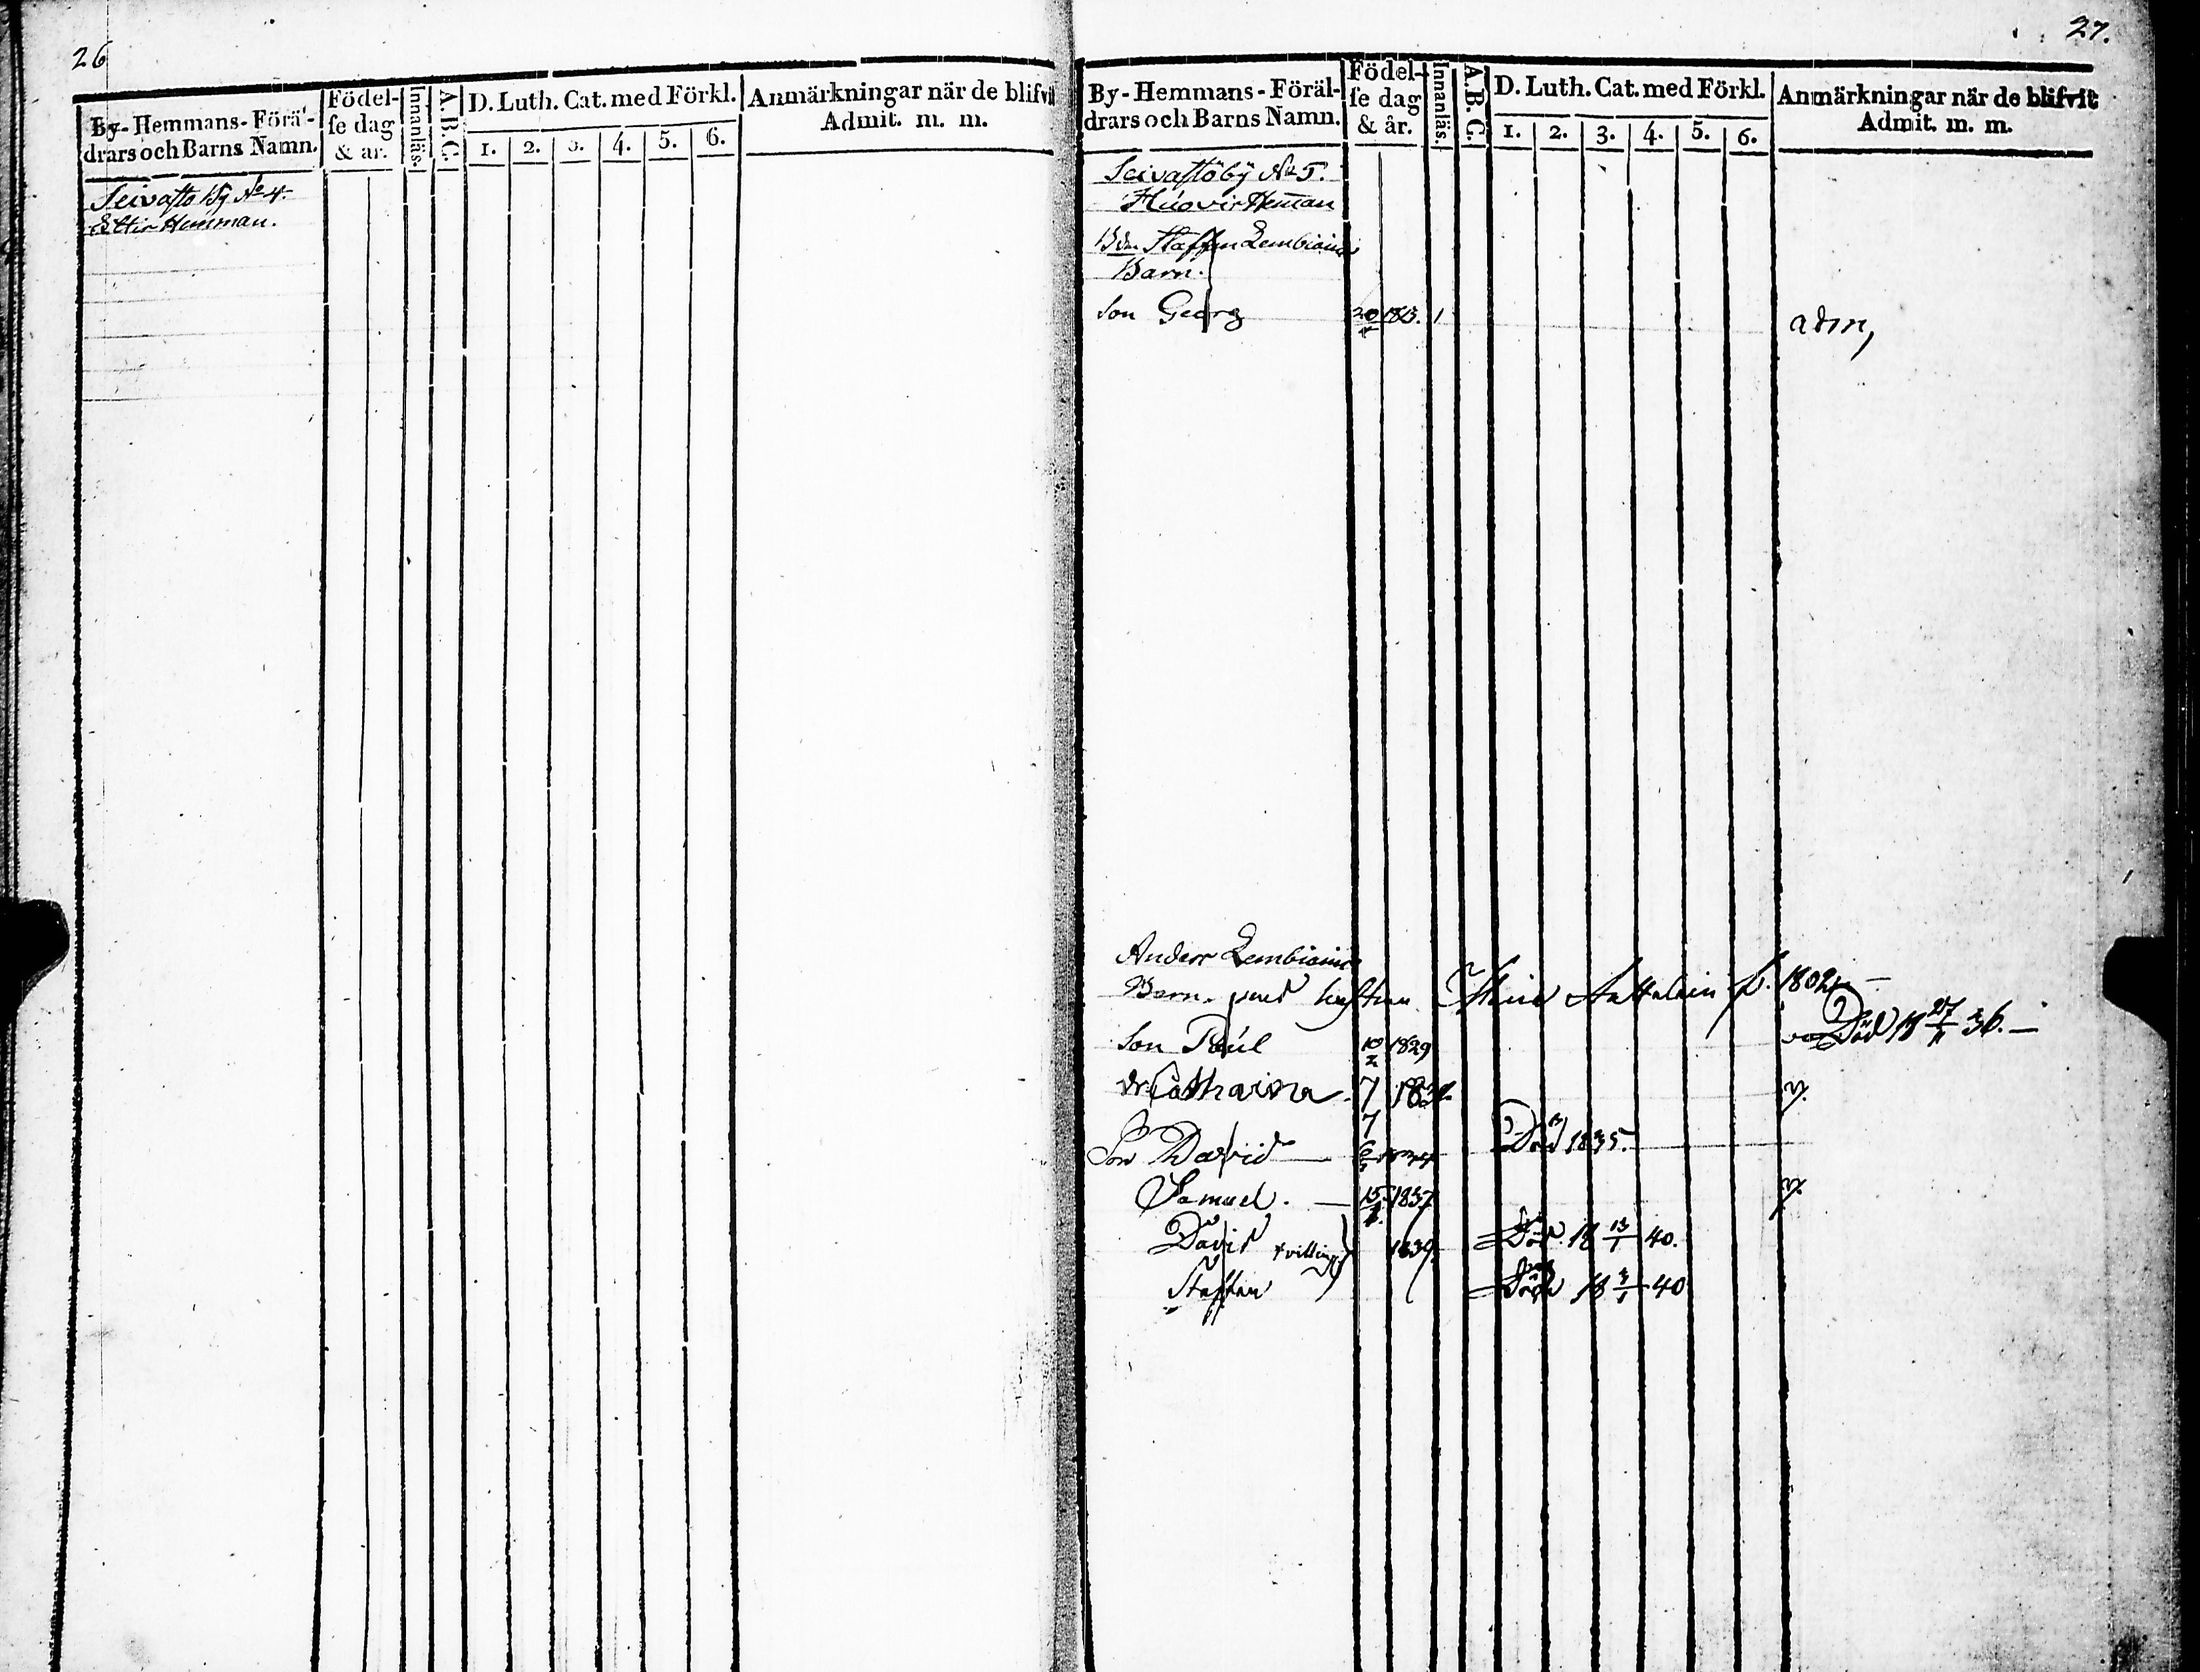 26
By-Hemmans-Föräl-
drars och Barns Namn.
Födel-
se dag
& år.
Innanläs.
A.B.C.
D. Luth. Cat. med Förkl.
1. 2. 3. 4. 5. 6.
Anmärkningar när de blifvit
Admit. m. m.
Seivasto By No 4.
Hemman.
27.
By-Hemmans-Föräl-
drars och Barns Namn.
Födel-
se dag
& år.
Innanläs.
A.B.C.
D. Luth. Cat. med Förkl.
1. 2. 3. 4. 5. 6.
Anmärkningar när de blifvit
Admit. m. m.
Seivastöby No 5.
Huovir Heman
Bdn Staffan Lembiäinen
Barn.
Son Georg 1813. 1 adm,
Anders Lembiäinen
Barn. med hustrun f. 1802
Son Paul 10/2 1829 Död 18 27/11 36.
dr Catharina 7/7 1831 v.
Son David 1834 Död 1835.
Samuel. 15/1. 1837 v.
David tvillingar 1839. Död 18 13/1 40.
Staffan Död 18 3/1 40